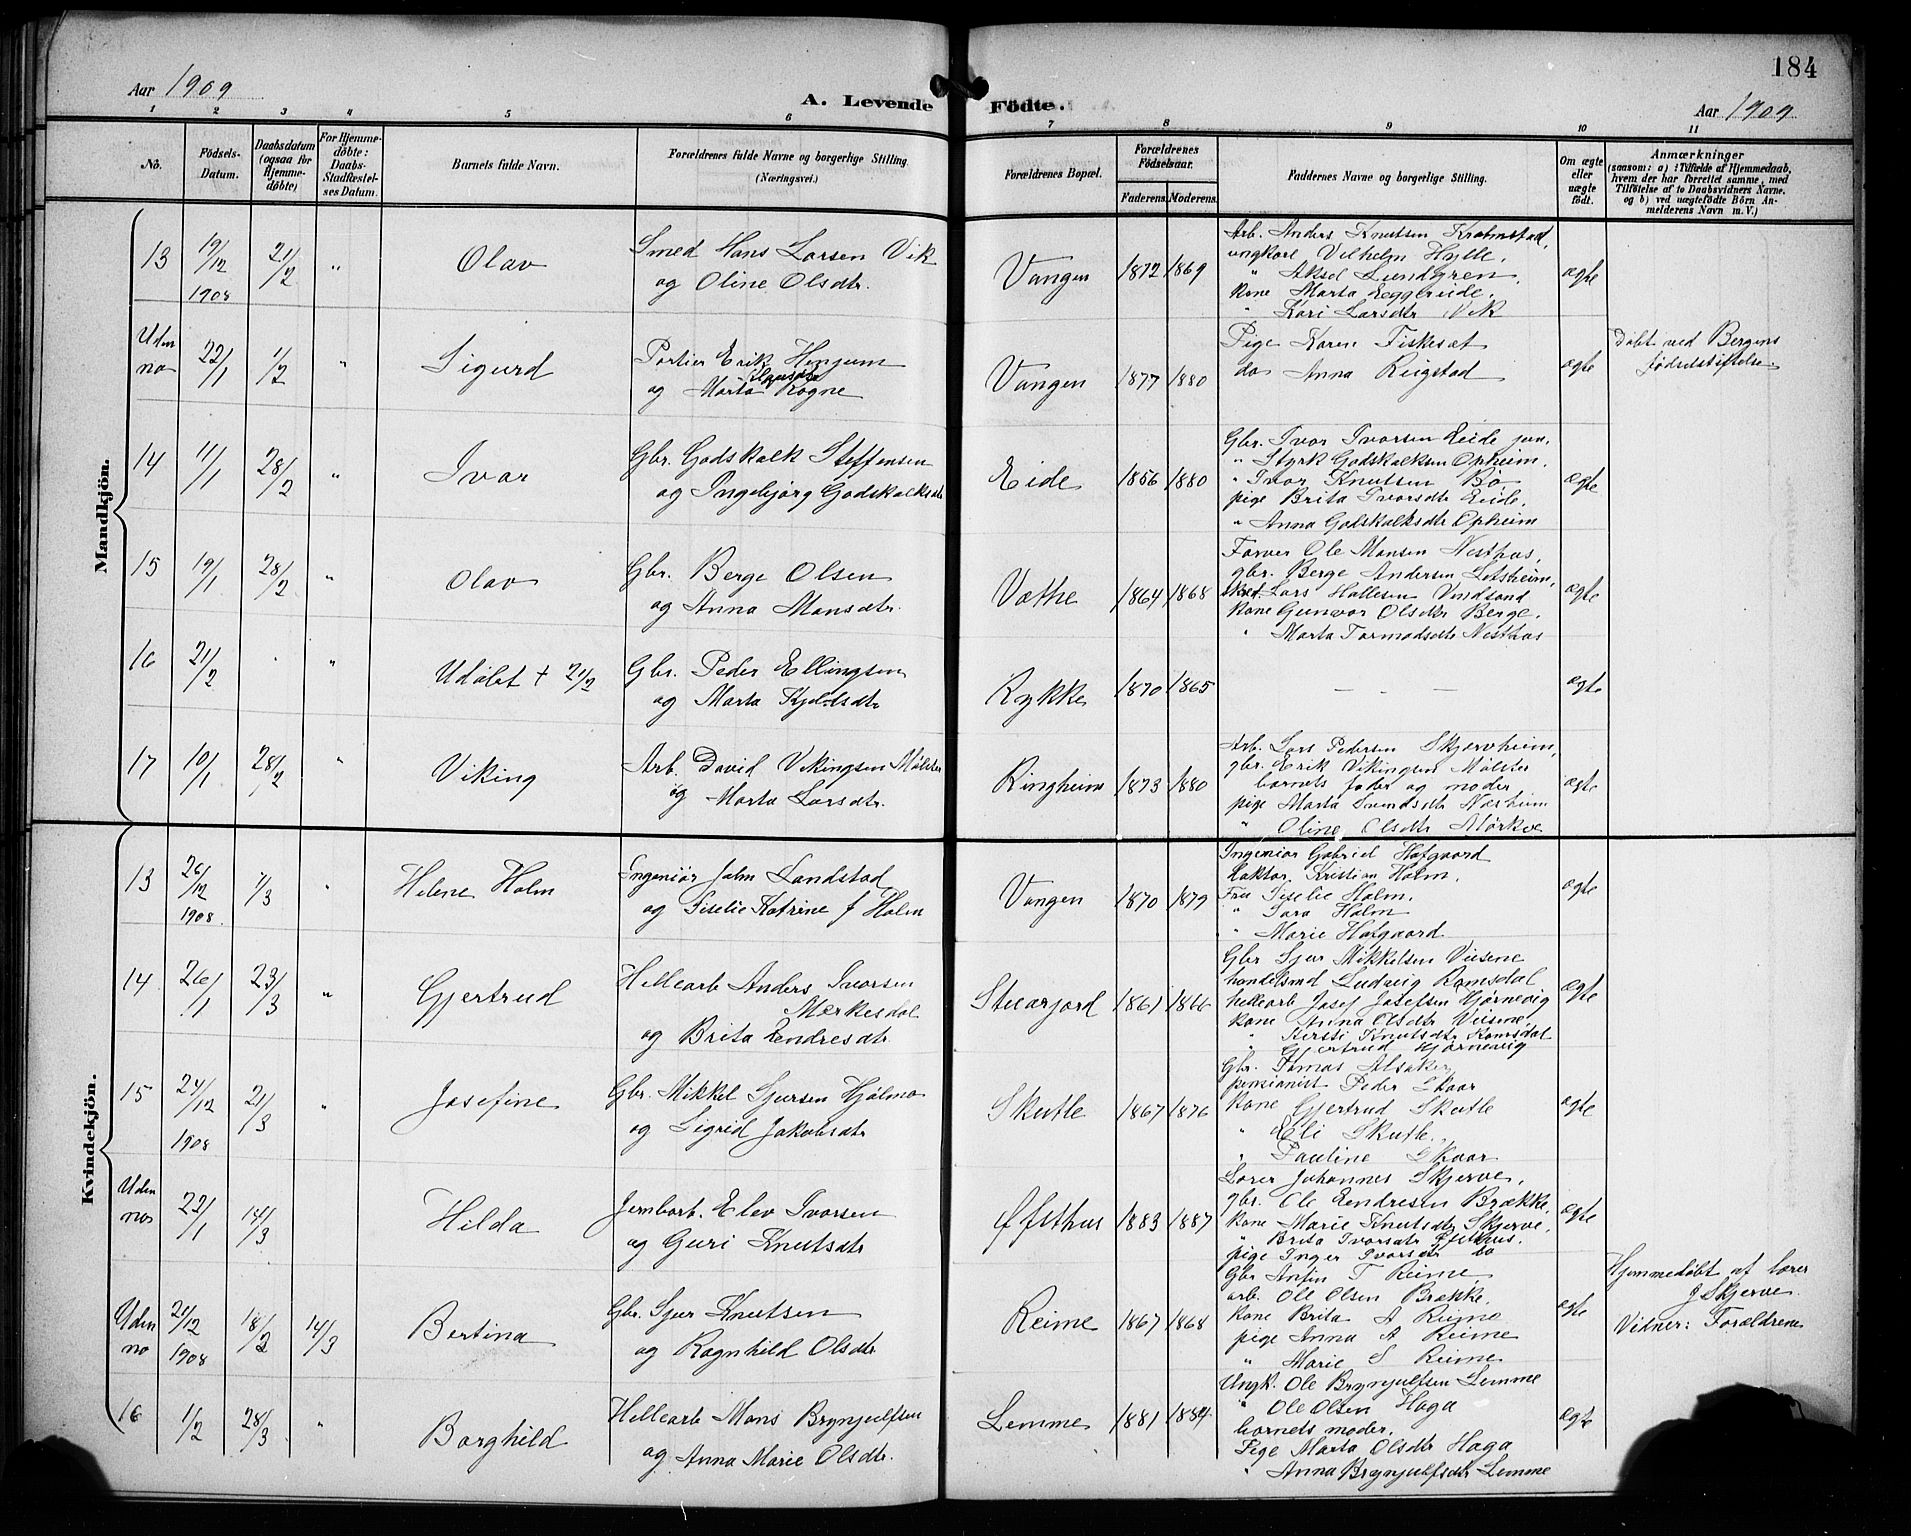 184
Aar 1909
A. Levende Födte.
Aar 1909
1 2 3 4 5 6 7 8 9 10 11
No.
Födsels-Datum.
Daabsdatum (ogsaa for Hjemme-döbte)
For Hjemme-döbte: Daabs-Stadfæstel-ses Datum.
Barnets fulde Navn.
Forældrenes fulde Navne og borgerlige Stilling.
(Næringsvei.)
Forældrenes Bopæl.
Forældrenes Födselsaar.
Faderens. Moderens.
Faddernes Navne og borgerlige Stilling.
Om ægte eller uægte födt.
Anmærkninger
(saasom: a) i Tilfælde af Hjemmedaab, hvem der har forrettet samme, med Tilföielse af to Daabsvidners Navne. og b) ved uægtefödte Börn An-melderens Navn m. V.)
Mandkjön.
13 19/12 1908 21/2 " Olav
Smed Hans Larsen Vik
og Oline Olsdtr.
Vangen 1872 1869
Arb. Anders Knutsen
ungkarl Vilhelm Hylle,
" Aksel Lundgren,
kone Marta Eggereide.
" Kari Larsdtr Vik
ægte
Uden no 22/1 1/2 " Sigurd
Portier Erik Henjum
og Marta Rogne
Vangen 1877 1880
Pige Karen Fiskeset
do Anna Reigstad
ægte
Døbt ved Bergens
fødselsstiftelse
14 11/1 28/2 " Ivar
Gbr. Godskalk Steffensen
og Ingebjørg Godskalksdtr
Eide 1856 1880
Gbr. Ivar Ivarsen Eide jun.
" Styrk Godskalksen Opheim.
" Ivar Knutsen Bø.
pige Brita Ivarsdtr Eide.
" Anna Godskalksdtr Opheim
ægte
15 19/1 28/2 " Olav
Gbr. Berge Olsen
og Anna Monsdtr.
Vathe 1864 1868
Farver Ole Monsen Nesthus,
gbr. Berge Andersen Setsheim,
Lars Hallesen Vindsand
kone Gunvor Olsdtr Berge.
" Marta Tormodsdtr Nesthus
ægte
16 21/2 . " Udøbt + 21/2
Gbr. Peder Ellingsen
og Marta Kjelsdtr
Rykke 1870 1865
— - —
ægte
17 10/1 28/2 " Viking
Arb. David Vikingsen Mølster
og Marta Larsdtr.
Ringheim 1873 1880
Arb. Lars Pedersen Skjervheim,
gbr. Erik Vikingsen Mølster
barnets fader og moder
pige Marta Svendsdtr Næsheim
" Oline Olsdtr Mørkve
ægte
Kvindekjön.
13 26/12 1908. 7/3 " Helene Holm
Ingeniør John Landstad
og Giselie Katrine f Holm
Vangen 1870 1879
Ingeniør Gabriel Hofgaard
Kristian Holm.
Fru Giselie Holm.
" Sara Holm
" Marie Hofgaard
ægte
14 26/1 23/3 " Gjertrud
Hellearb Anders Ivarsen
Mørkesdal
og Brita Endresdtr
1861 1866
Gbr Sjur Mikkelsen Visene
handelsmd Ludvig Ramsdal
hellearb Josef Josefsen Hjørnevig
kone Anna Olsdtr Visene,
" Kersti Knutsdtr Ramsdal
" Gjertrud Hjørnevig
ægte
15 24/12 1908 21/3 " Josefine
Gbr. Mikkel Sjursen Hjølmo
og Sigrid Jakobsdtr
Skutle 1867 1876
Gbr. Tomas Alsaker
pensionist Peder Skaar
kone Gjertrud Skutle
" Eli Skutle.
" Pauline Skaar
ægte
Uden no 22/1 14/3 Hilda
Jernbarb. Elev Ivarsen
og Guri Knutsdtr
Øfsthus 1883 1887
Lærer Johannes Skjerve,
gbr. Ole Endresen Brække.
kone Marie Knutsdtr Skjerve,
" Brita Ivarsdtr Øfsthus.
pige Inger Ivarsdtr do
ægte
Uden no 21/12 1908 18/2 14/3 Bertina
Gbr. Sjur Knutsen
og Ragnhild Olsdtr
Reime 1867 1868
Gbr Anfin T Reime,
arb. Ole Olsen Brekke.
kone Brita A Reime
pige Anna A Reime
" Marie S Reime
ægte
Hjemmedøbt af lærer
J Skjerve.
Vidner: Forældrene
16 1/2 28/3 " Borghild
Hellearb Mons Brynjulfsen
og Anna Marie Olsdtr.
Lemme 1881 1884
Ungk. Ole Brynjulfsen Lemme
" Ole Olsen Haga
barnets moder,
Pige Marta Olsdtr Haga
" Anna Brynjulfsdtr Lemme
ægte